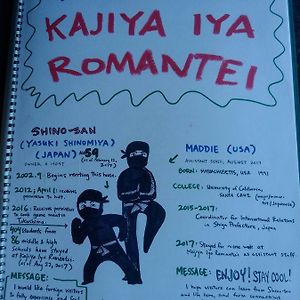 KAJIYA IYA
ROMANTEI
SHINO-SAN
(YASUKI SHINOMIYA)
(JAPAN) AGE 59
OWNER & HOST
2002.9: Begins renting this house.
2012; April 11: receives
permission to
2016: Receives permission
to cook game meat in
Tokushima.
404 students from
86 middle & high
schools have stayed
at Kajiya Iya Romantei
(as of Aug 22, 2017)
MESSAGE:
I would like foreign visitors
to fully experience and feel
MADDIE (USA)
ASSISTANT STAFF, AUGUST 2017
BORN: MASSACHUSETTS, USA 1991
COLLEGE: University of California,
SANTA CRUZ
2015-2017:
Coordinator for International Relations
in Shiga Prefecture, Japan
2017: Stayed for one week at
Kajiya Iya Romantei as assistant staff
MESSAGE: ENJOY! STAY COOL!
I hope visitors can learn from Shino-san